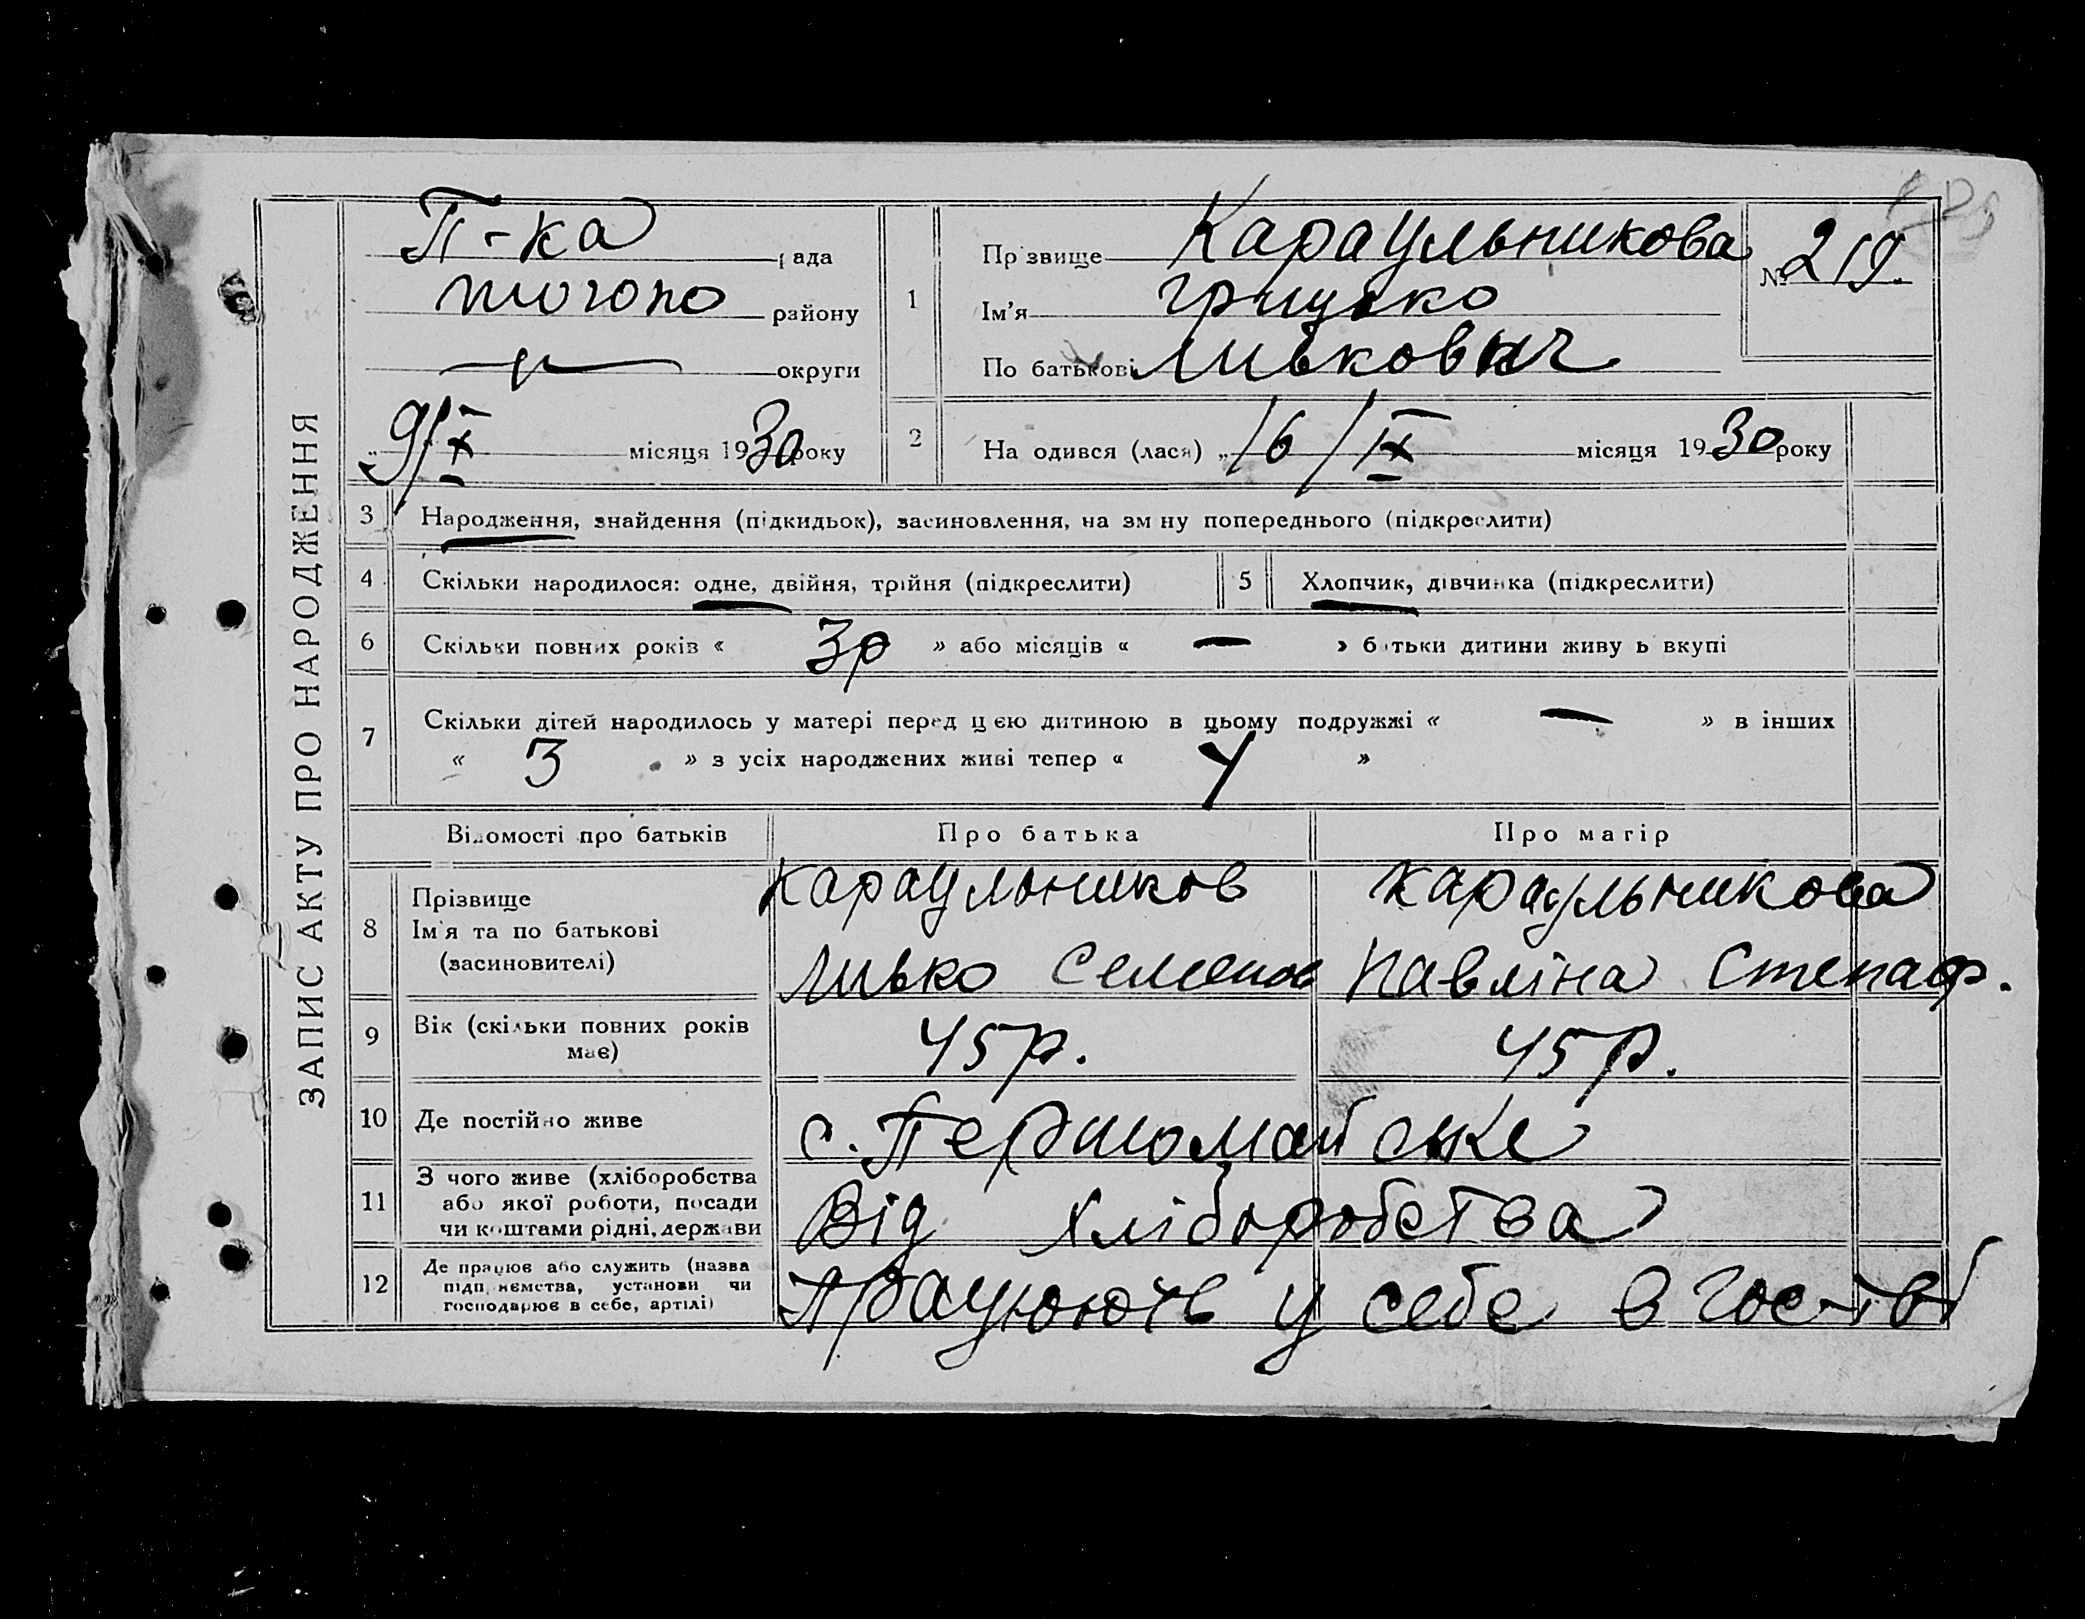 ЗАПИС АКТУ ПРО НАРОДЖЕННЯ
П-ка рада
району
округи
„9/X місяця 1930 року
1 Прізвище Караульникова
Ім'я Грицько
По батькові Личкович
№ 219.
2 Народився (лася) „16/IX місяця 1930 року
3 Народження, знайдення (підкидьок), засиновлення, на зміну попереднього (підкреслити)
4 Скільки народилося: одне, двійня, трійня (підкреслити)
5 Хлопчик, дівчинка (підкреслити)
6 Скільки повних років « 3р » або місяців « — » батьки дитини живуть вкупі
7 Скільки дітей народилось у матері перед цією дитиною в цьому подружжі « — » в інших
« 3 » з усіх народжених живі тепер « 4 »
Відомості про батьків Про батька Про матір
8 Прізвище
Ім'я та по батькові
(засиновителі)
Караульников
Семенов
Караульникова
Павліна Степаф.
9 Вік (скільки повних років має) 45р. 45р.
10 Де постійно живе с. Першомайське
11 З чого живе (хліборобства
або якої роботи, посади
чи коштами рідні, держави
Від хліборобства
12 Де працює або служить (назва
підприємства, установи чи
господарює в себе, артілі)
Працюють у себе в госп-тві